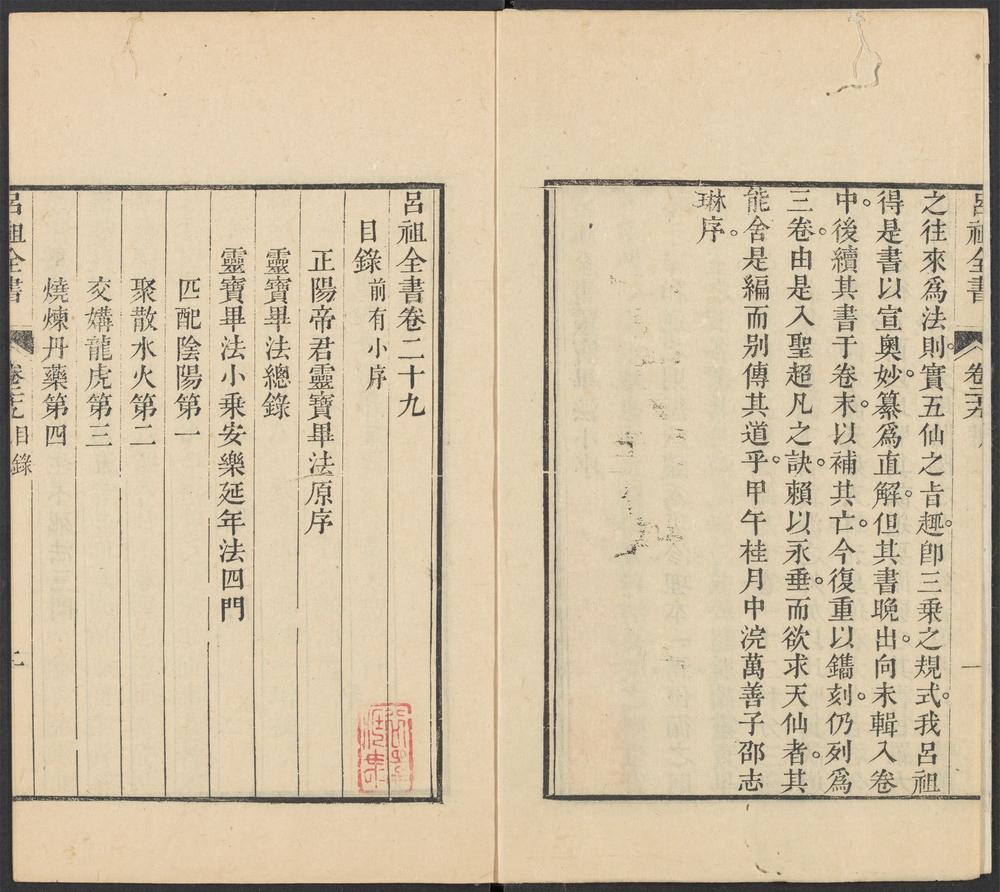 呂祖全書
之往來爲法則。實五仙之旨趣。卽三乘之規式。我呂祖
得是書以宣奧妙。纂爲直解。但其書晚出。向未輯入卷
中。後續其書于卷末。以補其亡。今復重以鐫刻。仍列爲
三卷。由是入聖超凡之訣。賴以永垂。而欲求天仙者。其
能舍是編而別傳其道乎。甲午桂月中浣萬善子邵志
琳序。
呂祖全書卷二十九
目錄前有小序
正陽帝君靈寶畢法原序
靈寶畢法總錄
靈寶畢法小乘安樂延年法四門
匹配陰陽第一
聚散水火第二
交媾龍虎第三
燒煉丹藥第四
呂祖全書 卷二十九目錄